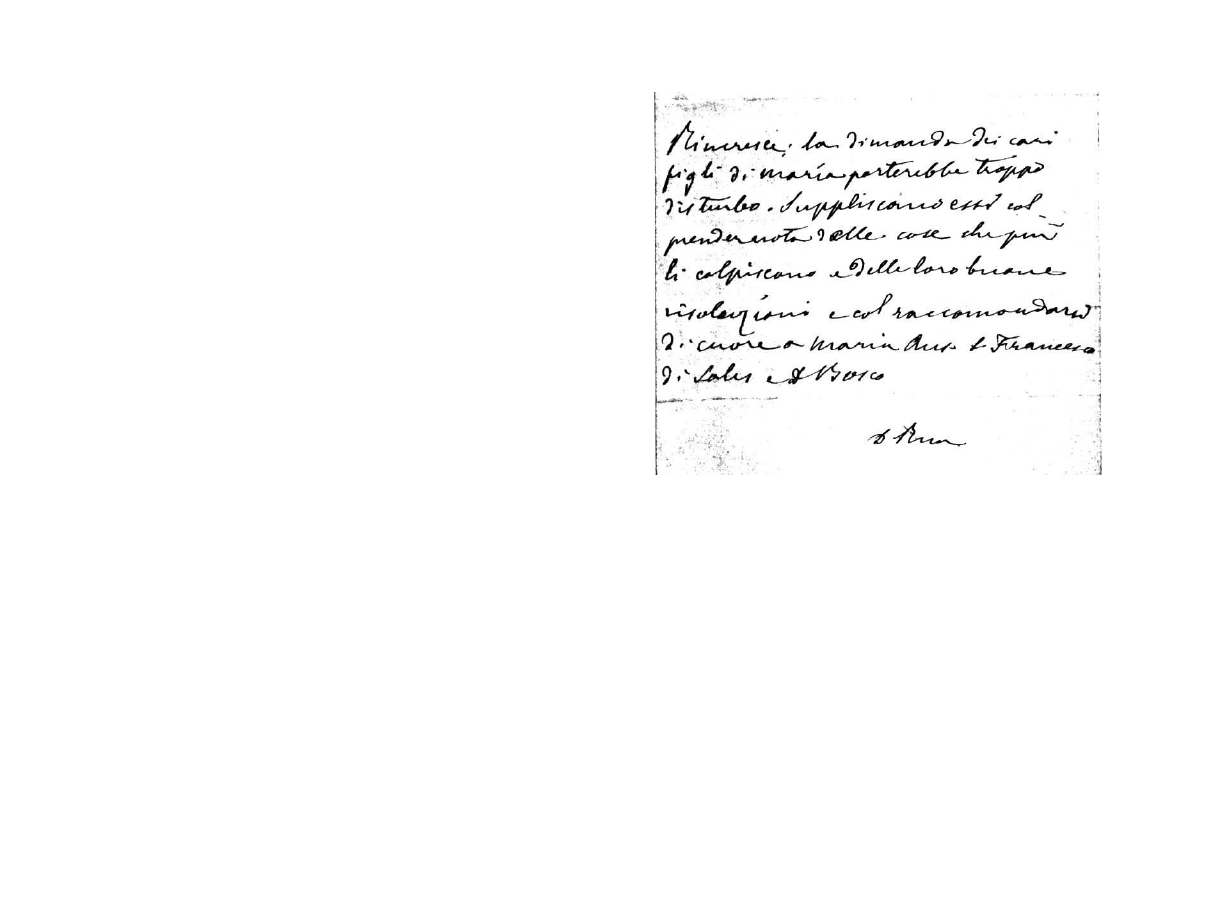 Rincresce; la dimanda dei cari
figli di Maria porterebbe troppo
disturbo. Suppliscano essi col
prender nota delle cose che più
li colpiscono e delle loro buone
risoluzioni e col raccomandarsi
di cuore a Maria Aus. S Francesco
di Sales e D Bosco
D Rua